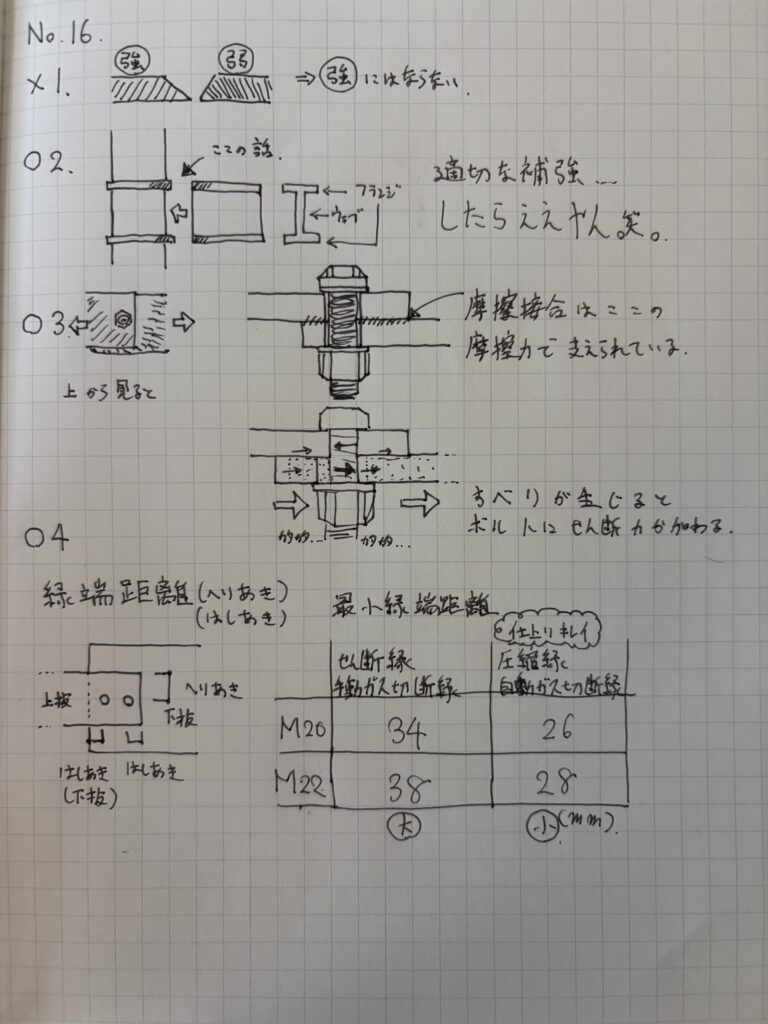 No.16.
×1. 強 弱 ⇒ 強 にはならない.
○2. ここの話.
フランジ
ウェブ
適切な補強…
したらええやん。笑。
○3.
上から見ると
摩擦接合はここの
摩擦力で支えられている.
すべりが生じると
ボルトにせん断力が加わる.
○4
縁端距離(へりあき)
(はしあき)
上板
へりあき
下板
はしあき はしあき
(下板)
最小縁端距離
仕上りキレイ
せん断縁 圧縮縁
手動ガス切断縁 自動ガス切断縁
M20 34 26
M22 38 28
大 小 (mm).